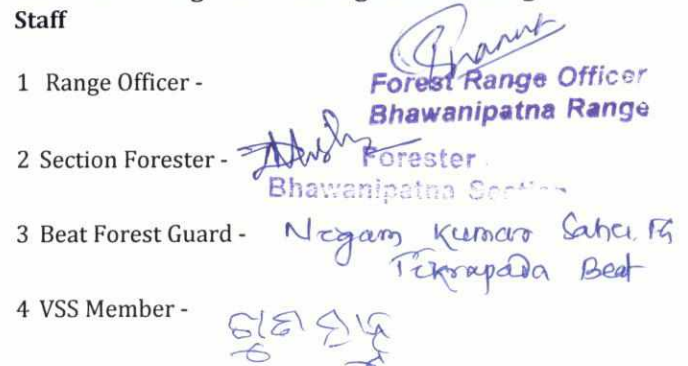 Staff
1 Range Officer -
Forest Range Officer
Bhawanipatna Range
2 Section Forester - Forester
Bhawanipatna Section
3 Beat Forest Guard - Nigam Kumar Sahu, FG
Tikrapada Beat
4 VSS Member -